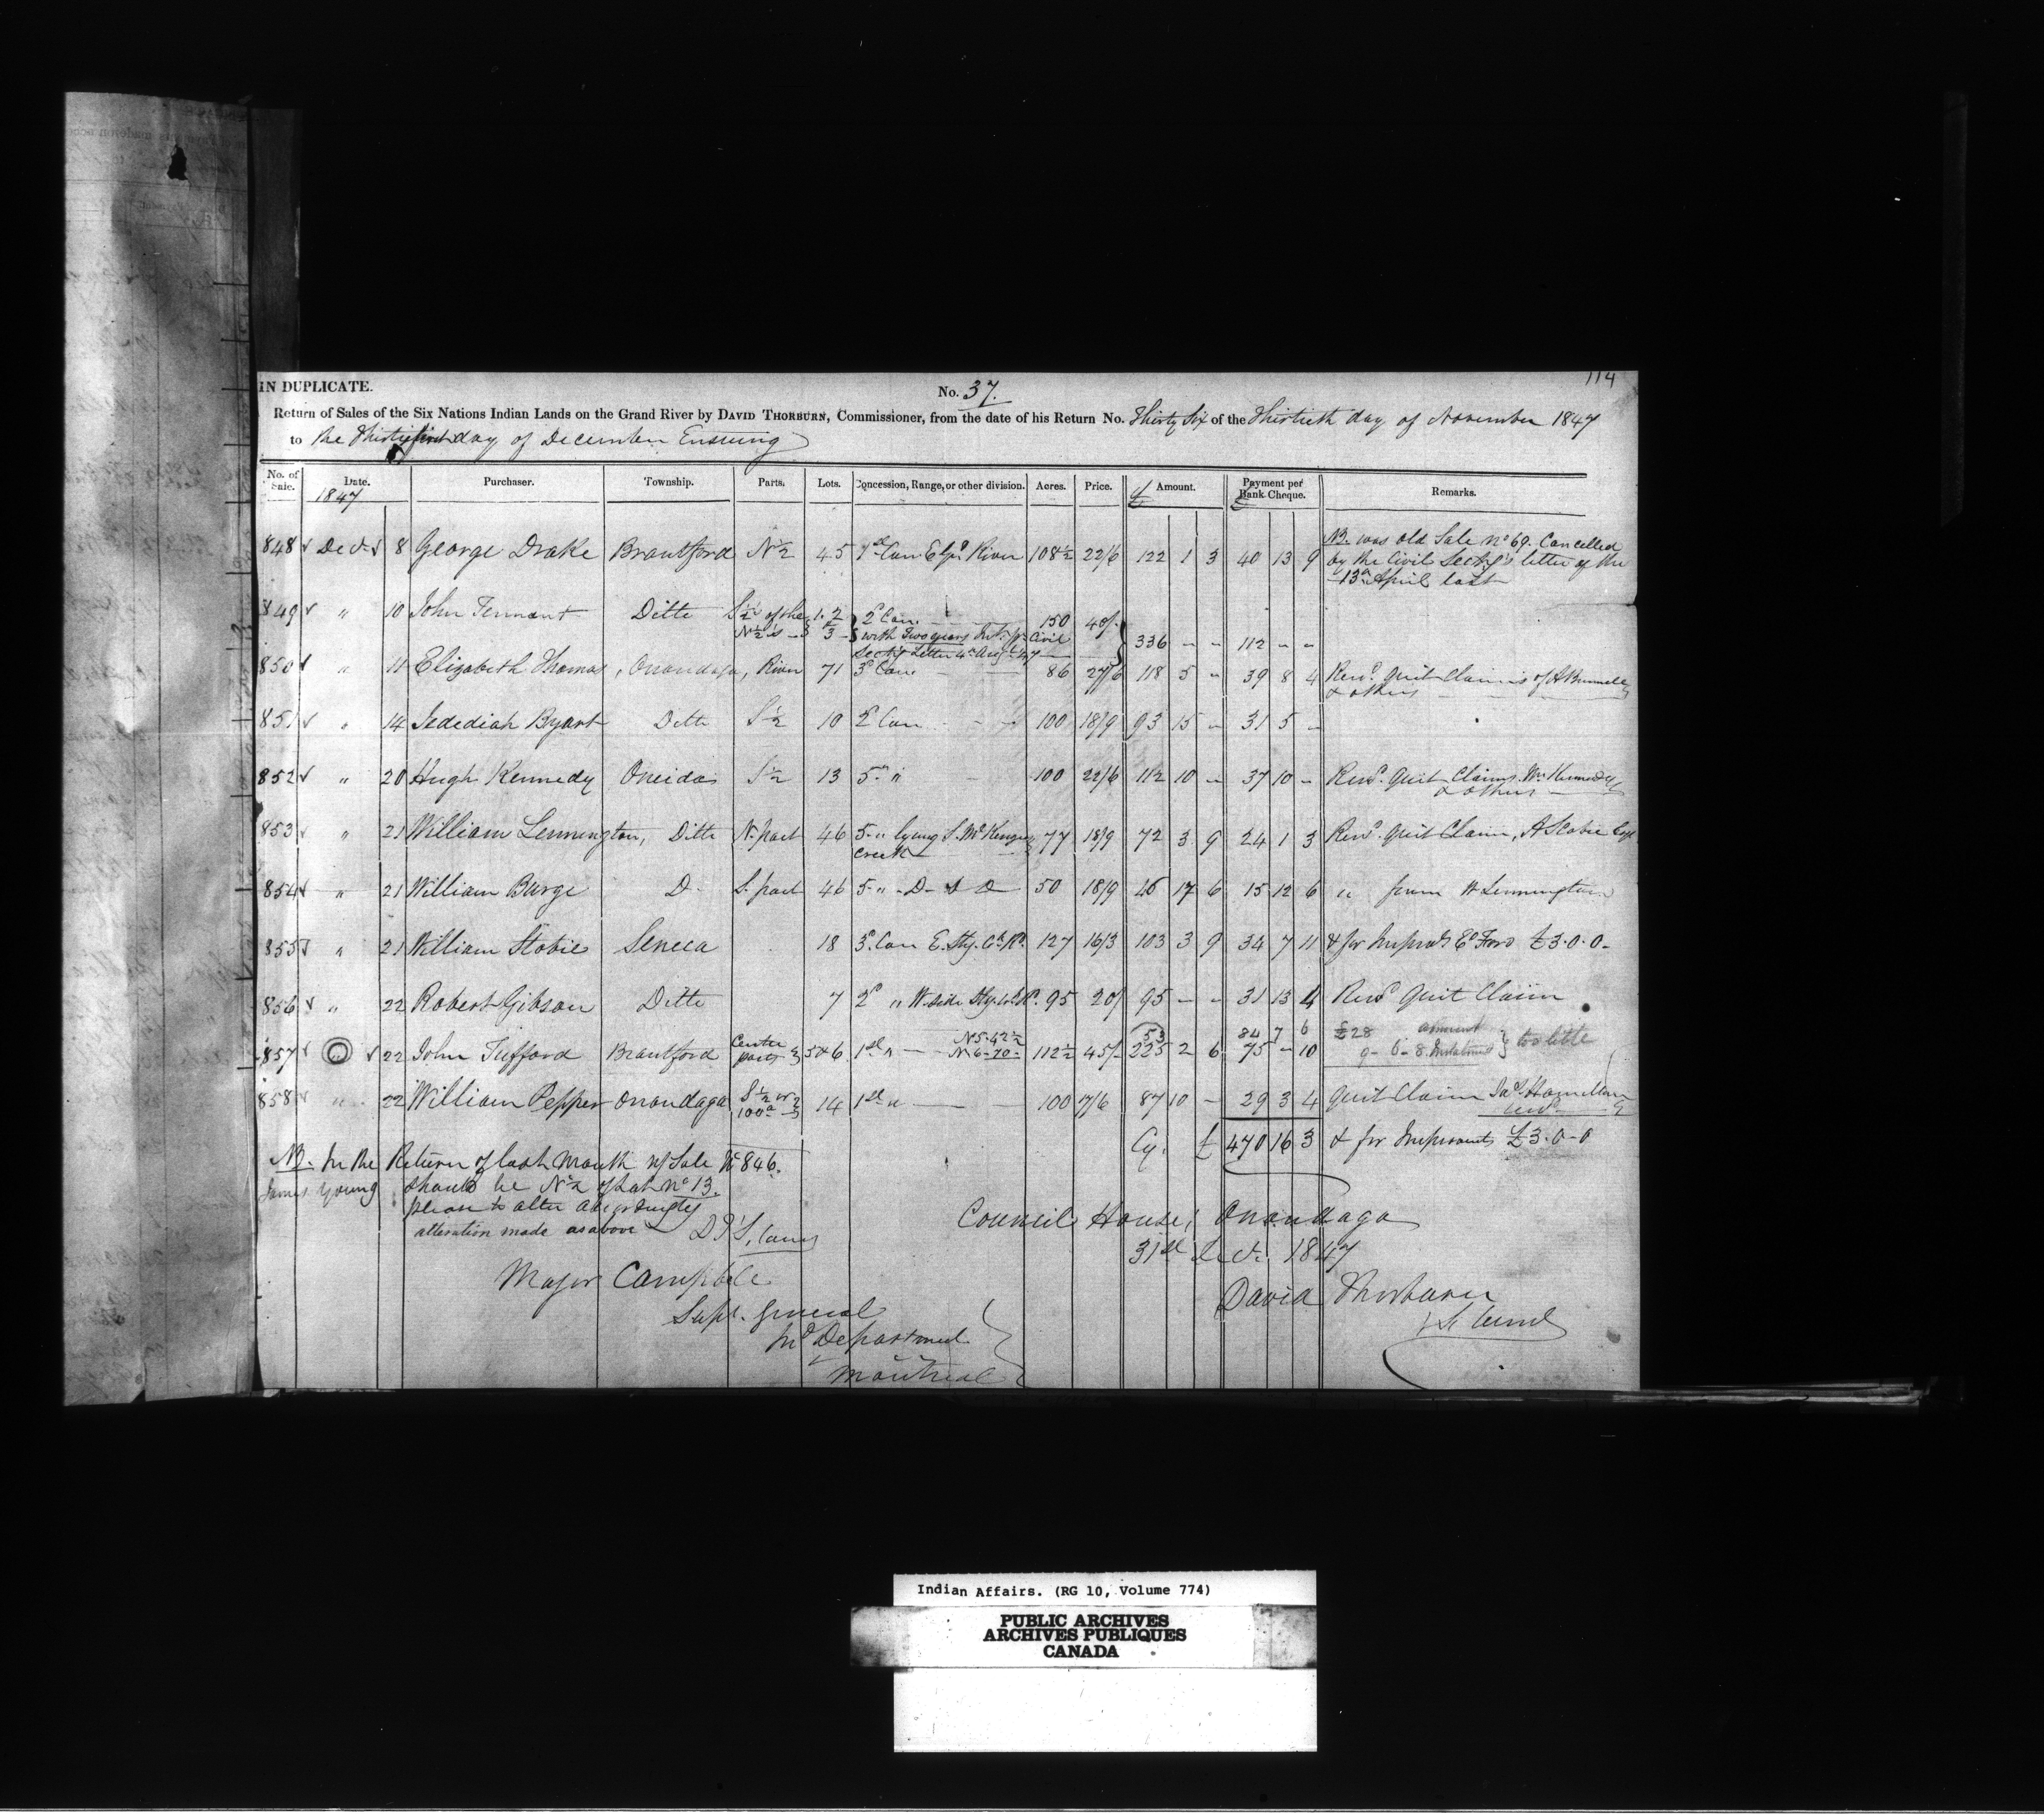 114
IN DUPLICATE.
No. 37.
Return of Sales of the Six Nations Indian Lands on the Grand River by DAVID THORBURN, Commissioner, from the date of his Return No. Thirty Six of the Thirtieth day of November 1847
to the Thirty first day of December Ensuing
No. of Sale. Date. Purchaser. Township. Parts. Lots. Concession, Range, or other division. Acres. Price. £ Amount. Payment per Bank Cheque. Remarks.
1847
848 Decr 8 George Drake Brantford N½ 45 1st Con E Gd River 108½ 22/6 122 1 3 40 13 9 NB. was old Sale No 69. Cancelled
by the Civil Secty's letter of the
13th April last
849 " 10 John Tennant Ditto S½ of the N½'s 1. 2 & 3 2d Con. 150 40/ 336 - - 112 - -
with Two years Int. pr Civil
Secty's Letter 4th Augt 47
850 " 11 Elizabeth Thomas, Onondaga, River 71 3d Con. 86 27/6 118 5 - 39 8 4 Rend. Quit Claims of A Bunnell
& others
851 " 14 Jedediah Byart Ditto S½ 10 2d Con 100 18/9 93 15 - 31 5 -
852 " 20 Hugh Kennedy Oneida S½ 13 5th " 100 22/6 112 10 - 37 10 - Rend. Quit Claims. Wm Kennedy
& others
853 " 21 William Lennington, Ditto N. part 46 5 " lying S. McKenzie 77 18/9 72 3 9 24 1 3 Rend. Quit Claim, A Scobie
Creek
854 " 21 William Barge D. S. part 46 5 " - D - D 50 18/9 46 17 6 15 12 6 " from W Lennington
855 " 21 William Stobie Seneca 18 3d. Con E. Sty. Ck. Rd. 127 16/3 103 3 9 34 7 11 & for Improvts Ed Ford £3.0.0-
856 " 22 Robert Gibson Ditto 7 2d " W. side Sty. Ck Rd. 95 20/ 95 - - 31 13 4 Rend Quit Claim
N5-42½ 53 84 7 6 £28 amount
857 " 22 John Tufford Brantford Center parts 5 & 6 1st " N6-70- 112½ 45/- 225 2 6 75 - 10 9-6-8 Instalment } too little
858 " 22 William Pepper Onondaga S½ or 100a 14 1st " 100 17/6 87 10 - 29 3 4 Quit Claim Jas. Hamilton
Cy. £ 470 16 3 & for Improvmts £3-0-0
NB. In the Return of last Month of Sale No 846.
James Young should be N½ of Lot No 13.
please to alter accordingly
alteration made as above D.T.
Council House, Onondaga
31st Decr. 1847
Major Campbell
David Thorburn
Supt. General
Ind Department
Montreal
Indian Affairs. (RG 10, Volume 774)
PUBLIC ARCHIVES
ARCHIVES PUBLIQUES
CANADA